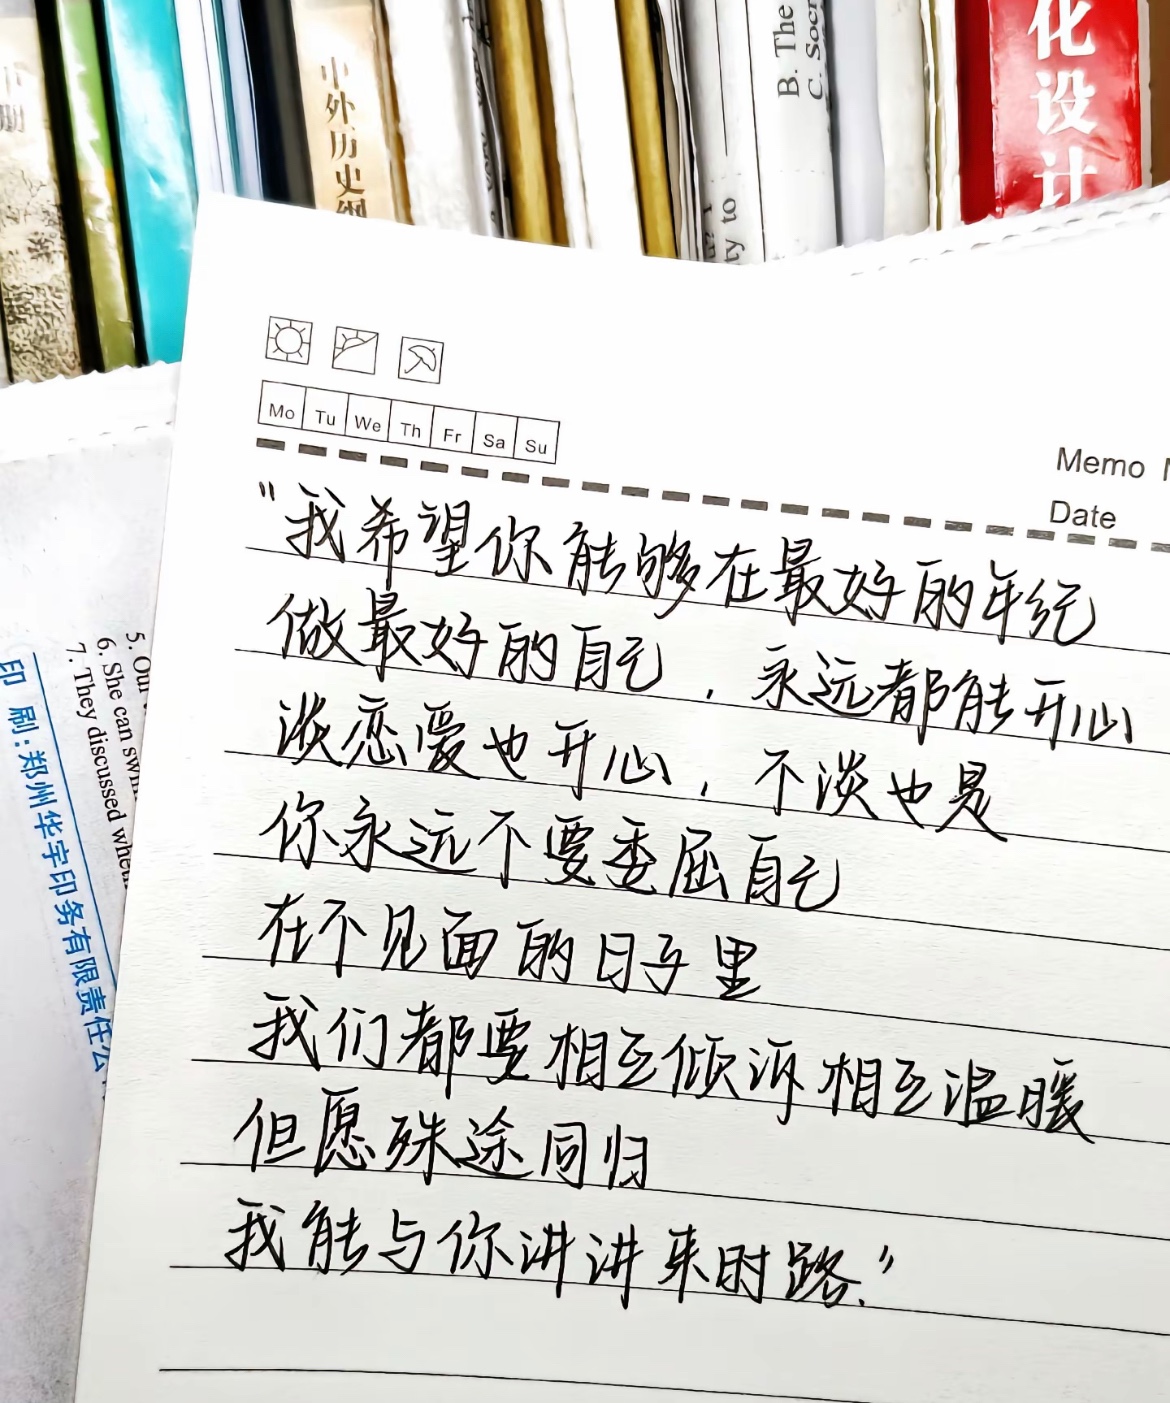 下册
中外历史纲
B. The
C. Socr
ty to
化设计
Mo Tu We Th Fr Sa Su
Memo
Date
"我希望你能够在最好的年纪
做最好的自己，永远都能开心
谈恋爱也开心，不谈也是
你永远不要委屈自己
在不见面的日子里
我们都要相互倾诉相互温暖
但愿殊途同归
我能与你讲讲来时路."
5. Our
6. She can swim
7. They discussed whe
印 刷:郑州华宇印务有限责任公